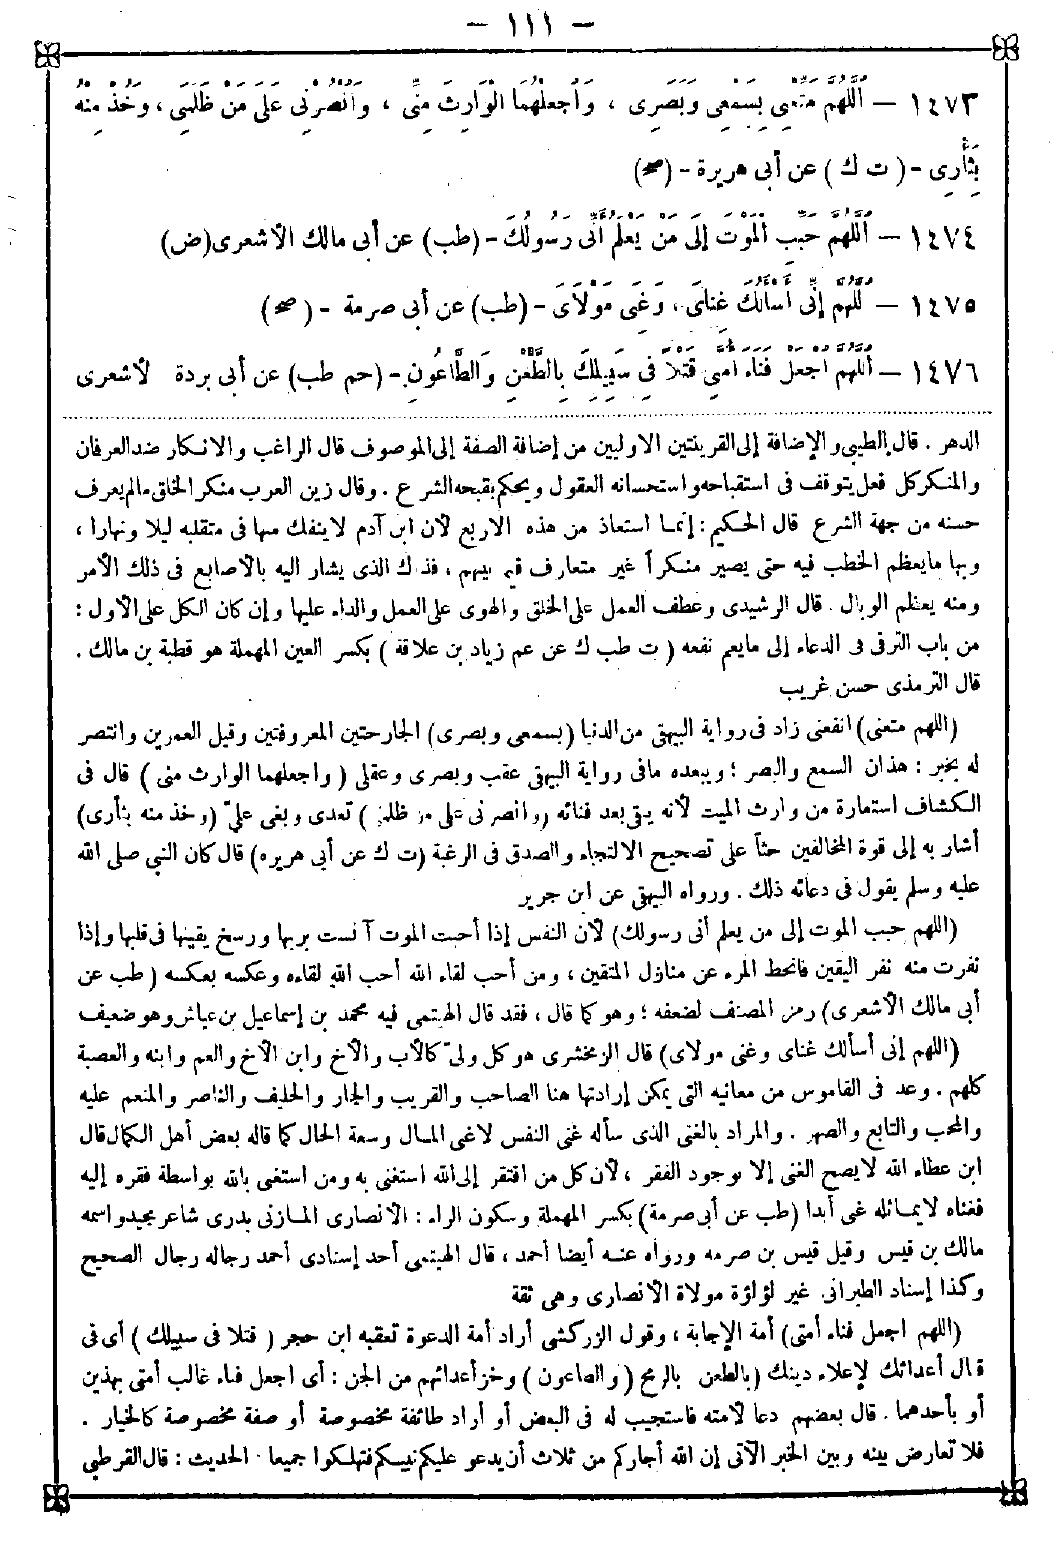 - ١١١ -
١٤٧٣ — اَللّٰهُمَّ مَتِّعْنِي بِسَمْعِي وَبَصَرِى ، وَاجْعَلْهُمَا الْوَارِثَ مِنِّى ، وَانْصُرْنِى عَلَى مَنْ ظَلَمَنِى ، وَخُذْ مِنْهُ
بِثَأْرِى - ( ت ك ) عن أبى هريرة - (صح)
١٤٧٤ — اَللّٰهُمَّ حَبِّبِ الْمَوْتَ إِلَى مَنْ يَعْلَمُ أَنِّى رَسُولُكَ - (طب) عن أبى مالك الأشعرى (ض)
١٤٧٥ — اَللّٰهُمَّ إِنِّى أَسْأَلُكَ غِنَاىَ ، وَغِنَى مَوْلَاىَ - (طب) عن أبى صرمة - (صح)
١٤٧٦ — اَللّٰهُمَّ اجْعَلْ فَنَاءَ أُمَّتِى قَتْلًا فِى سَبِيلِكَ بِالطَّعْنِ وَالطَّاعُونِ - (حم طب) عن أبى بردة الأشعرى
الدهر . قال الطيبى والإضافة إلى القرينتين الأوليين من إضافة الصفة إلى الموصوف قال الراغب والانكار ضد العرفان
والمنكر كل فعل يتوقف فى استقباحه واستحسانه العقول ويحكم بقبحه الشرع . وقال زين العرب منكر الخلق مالم يعرف
حسنه من جهة الشرع قال الحكيم : إنما استعاذ من هذه الاربع لأن ابن آدم لا ينفك منها فى متقلبه ليلا ونهارا ،
وبها مايعظم الخطب فيه حتى يصير منكراً غير متعارف فيما بينهم ، فذاك الذى يشار اليه بالأصابع فى ذلك الأمر
ومنه يعظم الوبال . قال الرشيدى وعطف العمل على الخلق والهوى على العمل والداء عليها وإن كان الكل على الأول :
من باب الترقى فى الدعاء إلى مايعم نفعه ( ت طب ك عن عم زياد بن علاقة ) بكسر العين المهملة هو قطبة بن مالك .
قال الترمذى حسن غريب
(اللهم متعنى) انفعنى زاد فى رواية البيهقى من الدنيا (بسمعى وبصرى) الجارحتين المعروفتين وقيل العمرين وانتصر
له بخبر : هذان السمع والبصر ؛ ويبعده مافى رواية البيهقى عقب وبصرى وعقلى ( واجعلهما الوارث منى ) قال فى
الكشاف استعارة من وارث الميت لأنه يبقى بعد فنائه (وانصرنى على من ظلمنى ) تعدى وبغى علىّ (وخذ منه بثأرى)
أشار به إلى قوة المخالفين حثاً على تصحيح الالتجاء والصدق فى الرغبة (ت ك عن أبى هريره) قال كان النبى صلى الله
عليه وسلم يقول فى دعائه ذلك . ورواه البيهقى عن ابن جرير
(اللهم حبب الموت إلى من يعلم أنى رسولك) لأن النفس إذا أحبت الموت آنست بربها ورسخ يقينها فى قلبها وإذا
نفرت منه نفر اليقين فانحط المرء عن منازل المتقين ، ومن أحب لقاء الله أحب الله لقاءه وعكسه بعكسه ( طب عن
أبى مالك الأشعرى) رمز المصنف لضعفه ؛ وهو كما قال ، فقد قال الهيتمى فيه محمد بن إسماعيل بن عياش وهو ضعيف
(اللهم إنى أسألك غناى وغنى مولاى) قال الزمخشرى هو كل ولىّ كالأب والأخ وابن الأخ والعم وابنه والعصبة
كلهم . وعد فى القاموس من معانيه التى يمكن إرادتها هنا الصاحب والقريب والجار والحليف والناصر والمنعم عليه
والمحب والتابع والصهر . والمراد بالغنى الذى سأله غنى النفس لاغنى المال وسعة الحال كما قاله بعض أهل الكمال قال
ابن عطاء الله لايصح الغنى إلا بوجود الفقر ، لأن كل من افتقر إلى الله استغنى به ومن استغنى بالله بواسطة فقره إليه
فغناه لايماثله غنى أبدا (طب عن أبى صرمة) بكسر المهملة وسكون الراء : الأنصارى المازنى بدرى شاعر مجيد واسمه
مالك بن قيس وقيل قيس بن صرمه ورواه عنه أيضا أحمد ، قال الهيتمى أحد إسنادى أحمد رجاله رجال الصحيح
وكذا إسناد الطبرانى غير لؤلؤة مولاة الأنصارى وهى ثقة
(اللهم اجعل فناء أمتى) أمة الإجابة ، وقول الزركشى أراد أمة الدعوة تعقبه ابن حجر ( قتلا فى سبيلك ) أى فى
قتال أعدائك لإعلاء دينك (بالطعن بالرمح ( والطاعون ) وخز أعدائهم من الجن : أى اجعل فناء غالب أمتى بهذين
أو بأحدهما . قال بعضهم دعا لأمته فاستجيب له فى البعض أو أراد طائفة مخصوصة أو صفة مخصوصة كالخيار .
فلا تعارض بينه وبين الخبر الآتى إن الله أجاركم من ثلاث أن يدعو عليكم نبيكم فتهلكوا جميعا . الحديث : قال القرطبى